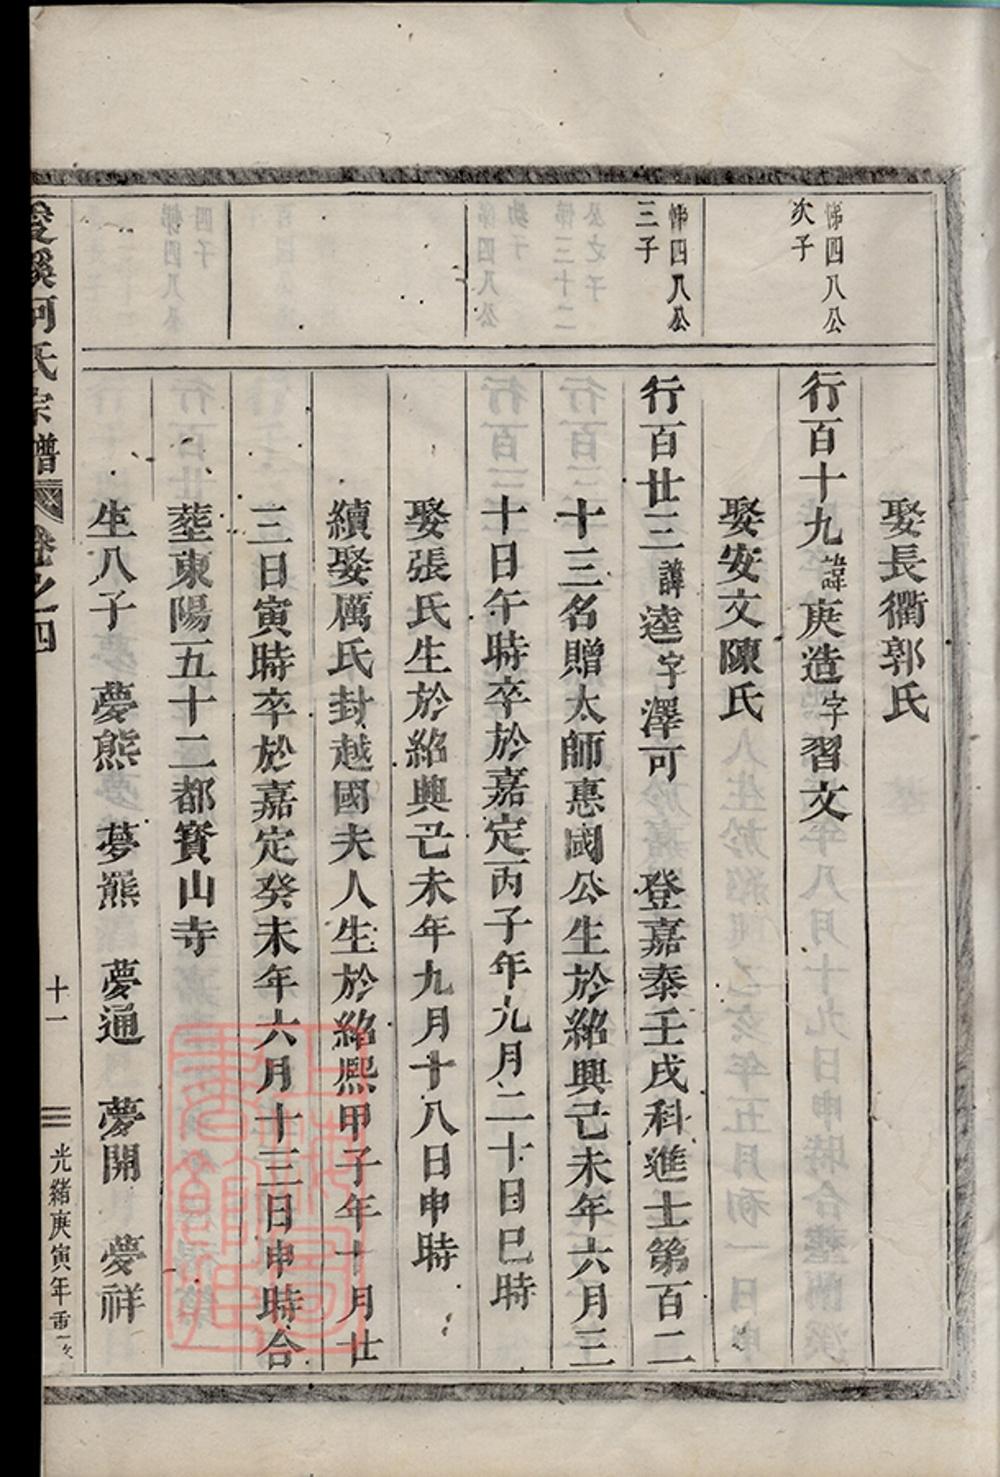 娶長衢郭氏
悌四八公
次子
行百十九諱庚造字習文
娶安文陳氏
悌四八公
三子
行百廿三諱逵字澤可　登嘉泰壬戌科進士第百二
十三名贈太師惠國公生於紹興己未年六月三
十日午時卒於嘉定丙子年九月二十日巳時
娶張氏生於紹興己未年九月十八日申時
續娶厲氏封越國夫人生於紹熙甲子年十月廿
三日寅時卒於嘉定癸未年六月十三日申時合
塟東陽五十二都寳山寺
生八子　夢熊　夢羆　夢通　夢開　夢祥
溪何氏宗譜
卷之四
十一
光緒庚寅年重